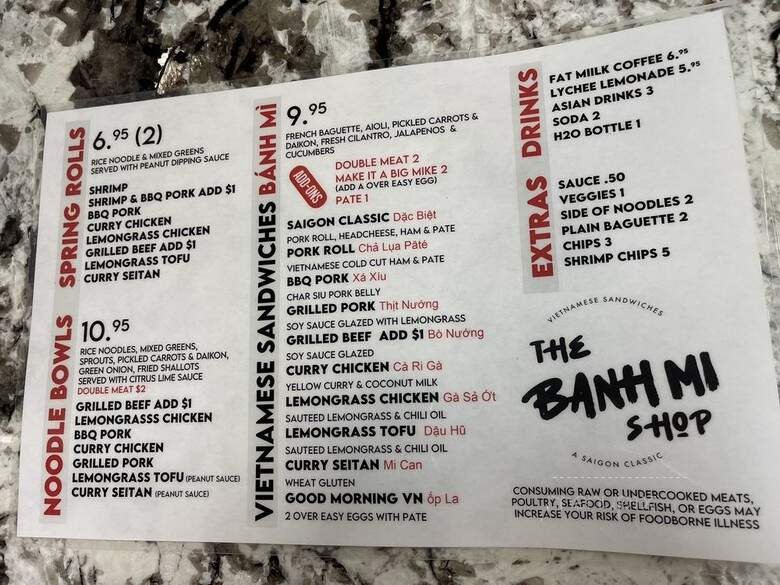 SPRING ROLLS
6.95 (2)
RICE NOODLE & MIXED GREENS
SERVED WITH PEANUT DIPPING SAUCE
SHRIMP
SHRIMP & BBQ PORK ADD $1
BBQ PORK
CURRY CHICKEN
LEMONGRASS CHICKEN
GRILLED BEEF ADD $1
LEMONGRASS TOFU
CURRY SEITAN
NOODLE BOWLS
10.95
RICE NOODLES, MIXED GREENS,
SPROUTS, PICKLED CARROTS & DAIKON,
GREEN ONION, FRIED SHALLOTS
SERVED WITH CITRUS LIME SAUCE
DOUBLE MEAT $2
GRILLED BEEF ADD $1
LEMONGRASSS CHICKEN
BBQ PORK
CURRY CHICKEN
GRILLED PORK
LEMONGRASS TOFU (PEANUT SAUCE)
CURRY SEITAN (PEANUT SAUCE)
VIETNAMESE SANDWICHES BÁNH MÌ
9.95
FRENCH BAGUETTE, AIOLI, PICKLED CARROTS &
DAIKON, FRESH CILANTRO, JALAPENOS &
CUCUMBERS
ADD-ONS
DOUBLE MEAT 2
MAKE IT A BIG MIKE 2
(ADD A OVER EASY EGG)
PATE 1
SAIGON CLASSIC Dặc Biệt
PORK ROLL, HEADCHEESE, HAM & PATE
PORK ROLL Chả Lụa Pâté
VIETNAMESE COLD CUT HAM & PATE
BBQ PORK Xá Xíu
CHAR SIU PORK BELLY
GRILLED PORK Thịt Nướng
SOY SAUCE GLAZED WITH LEMONGRASS
GRILLED BEEF ADD $1 Bò Nướng
SOY SAUCE GLAZED
CURRY CHICKEN Cà Ri Gà
YELLOW CURRY & COCONUT MILK
LEMONGRASS CHICKEN Gà Sả Ớt
SAUTEED LEMONGRASS & CHILI OIL
LEMONGRASS TOFU Dậu Hũ
SAUTEED LEMONGRASS & CHILI OIL
CURRY SEITAN Mi Can
WHEAT GLUTEN
GOOD MORNING VN ốp La
2 OVER EASY EGGS WITH PATE
DRINKS
FAT MIILK COFFEE 6.95
LYCHEE LEMONADE 5.95
ASIAN DRINKS 3
SODA 2
H2O BOTTLE 1
EXTRAS
SAUCE .50
VEGGIES 1
SIDE OF NOODLES 2
PLAIN BAGUETTE 2
CHIPS 3
SHRIMP CHIPS 5
VIETNAMESE SANDWICHES
THE
BANH MI
SHOP
A SAIGON CLASSIC
CONSUMING RAW OR UNDERCOOKED MEATS,
POULTRY, SEAFOOD, SHELLFISH, OR EGGS MAY
INCREASE YOUR RISK OF FOODBORNE ILLNESS